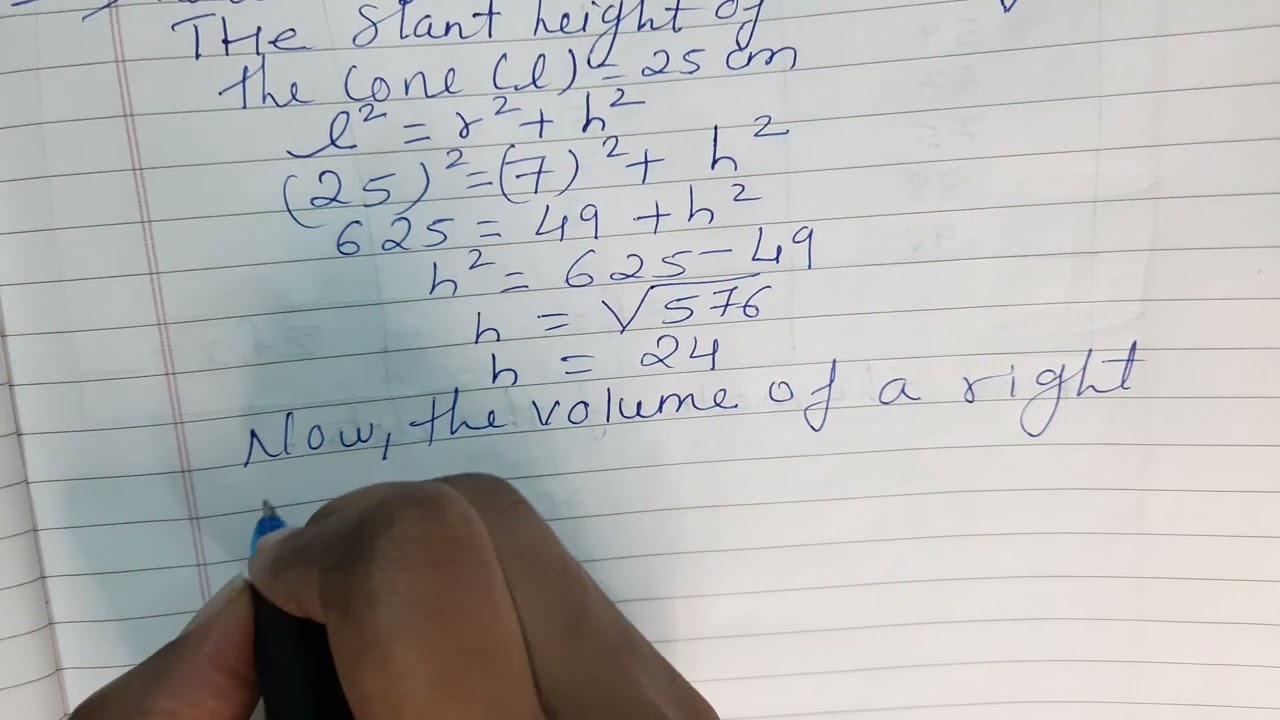 THe slant height of
the cone (l) = 25 cm
l² = r² + h²
(25)² = (7)² + h²
625 = 49 + h²
h² = 625 - 49
h = √576
h = 24
Now, the volume of a right